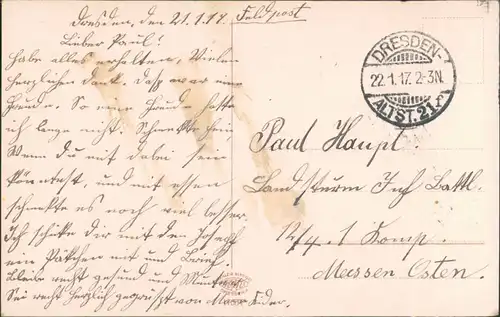 Dresden, den 21.1.17.
Feldpost
Lieber Paul!
habe alles erhalten, Vielen
herzlichen Dank. Dass war eine
Freude. So eine Freude hatte
ich lange nicht. Schmeckte fein,
Wenn du mit dabei sein
könntest, und mit essen
schmekte es noch viel besser.
Ich schicke dir mit den Joseph
ein Päkchen mit und Brief.
Bleibe recht gesund und Munter
Sei recht herzlich gegrüsst von
DRESDEN-
22.1.17. 2-3N.
ALTST. 21 f
Paul Haupt
Landsturm Inf. Battl.
12/4. 1 Komp.
Massen Osten.